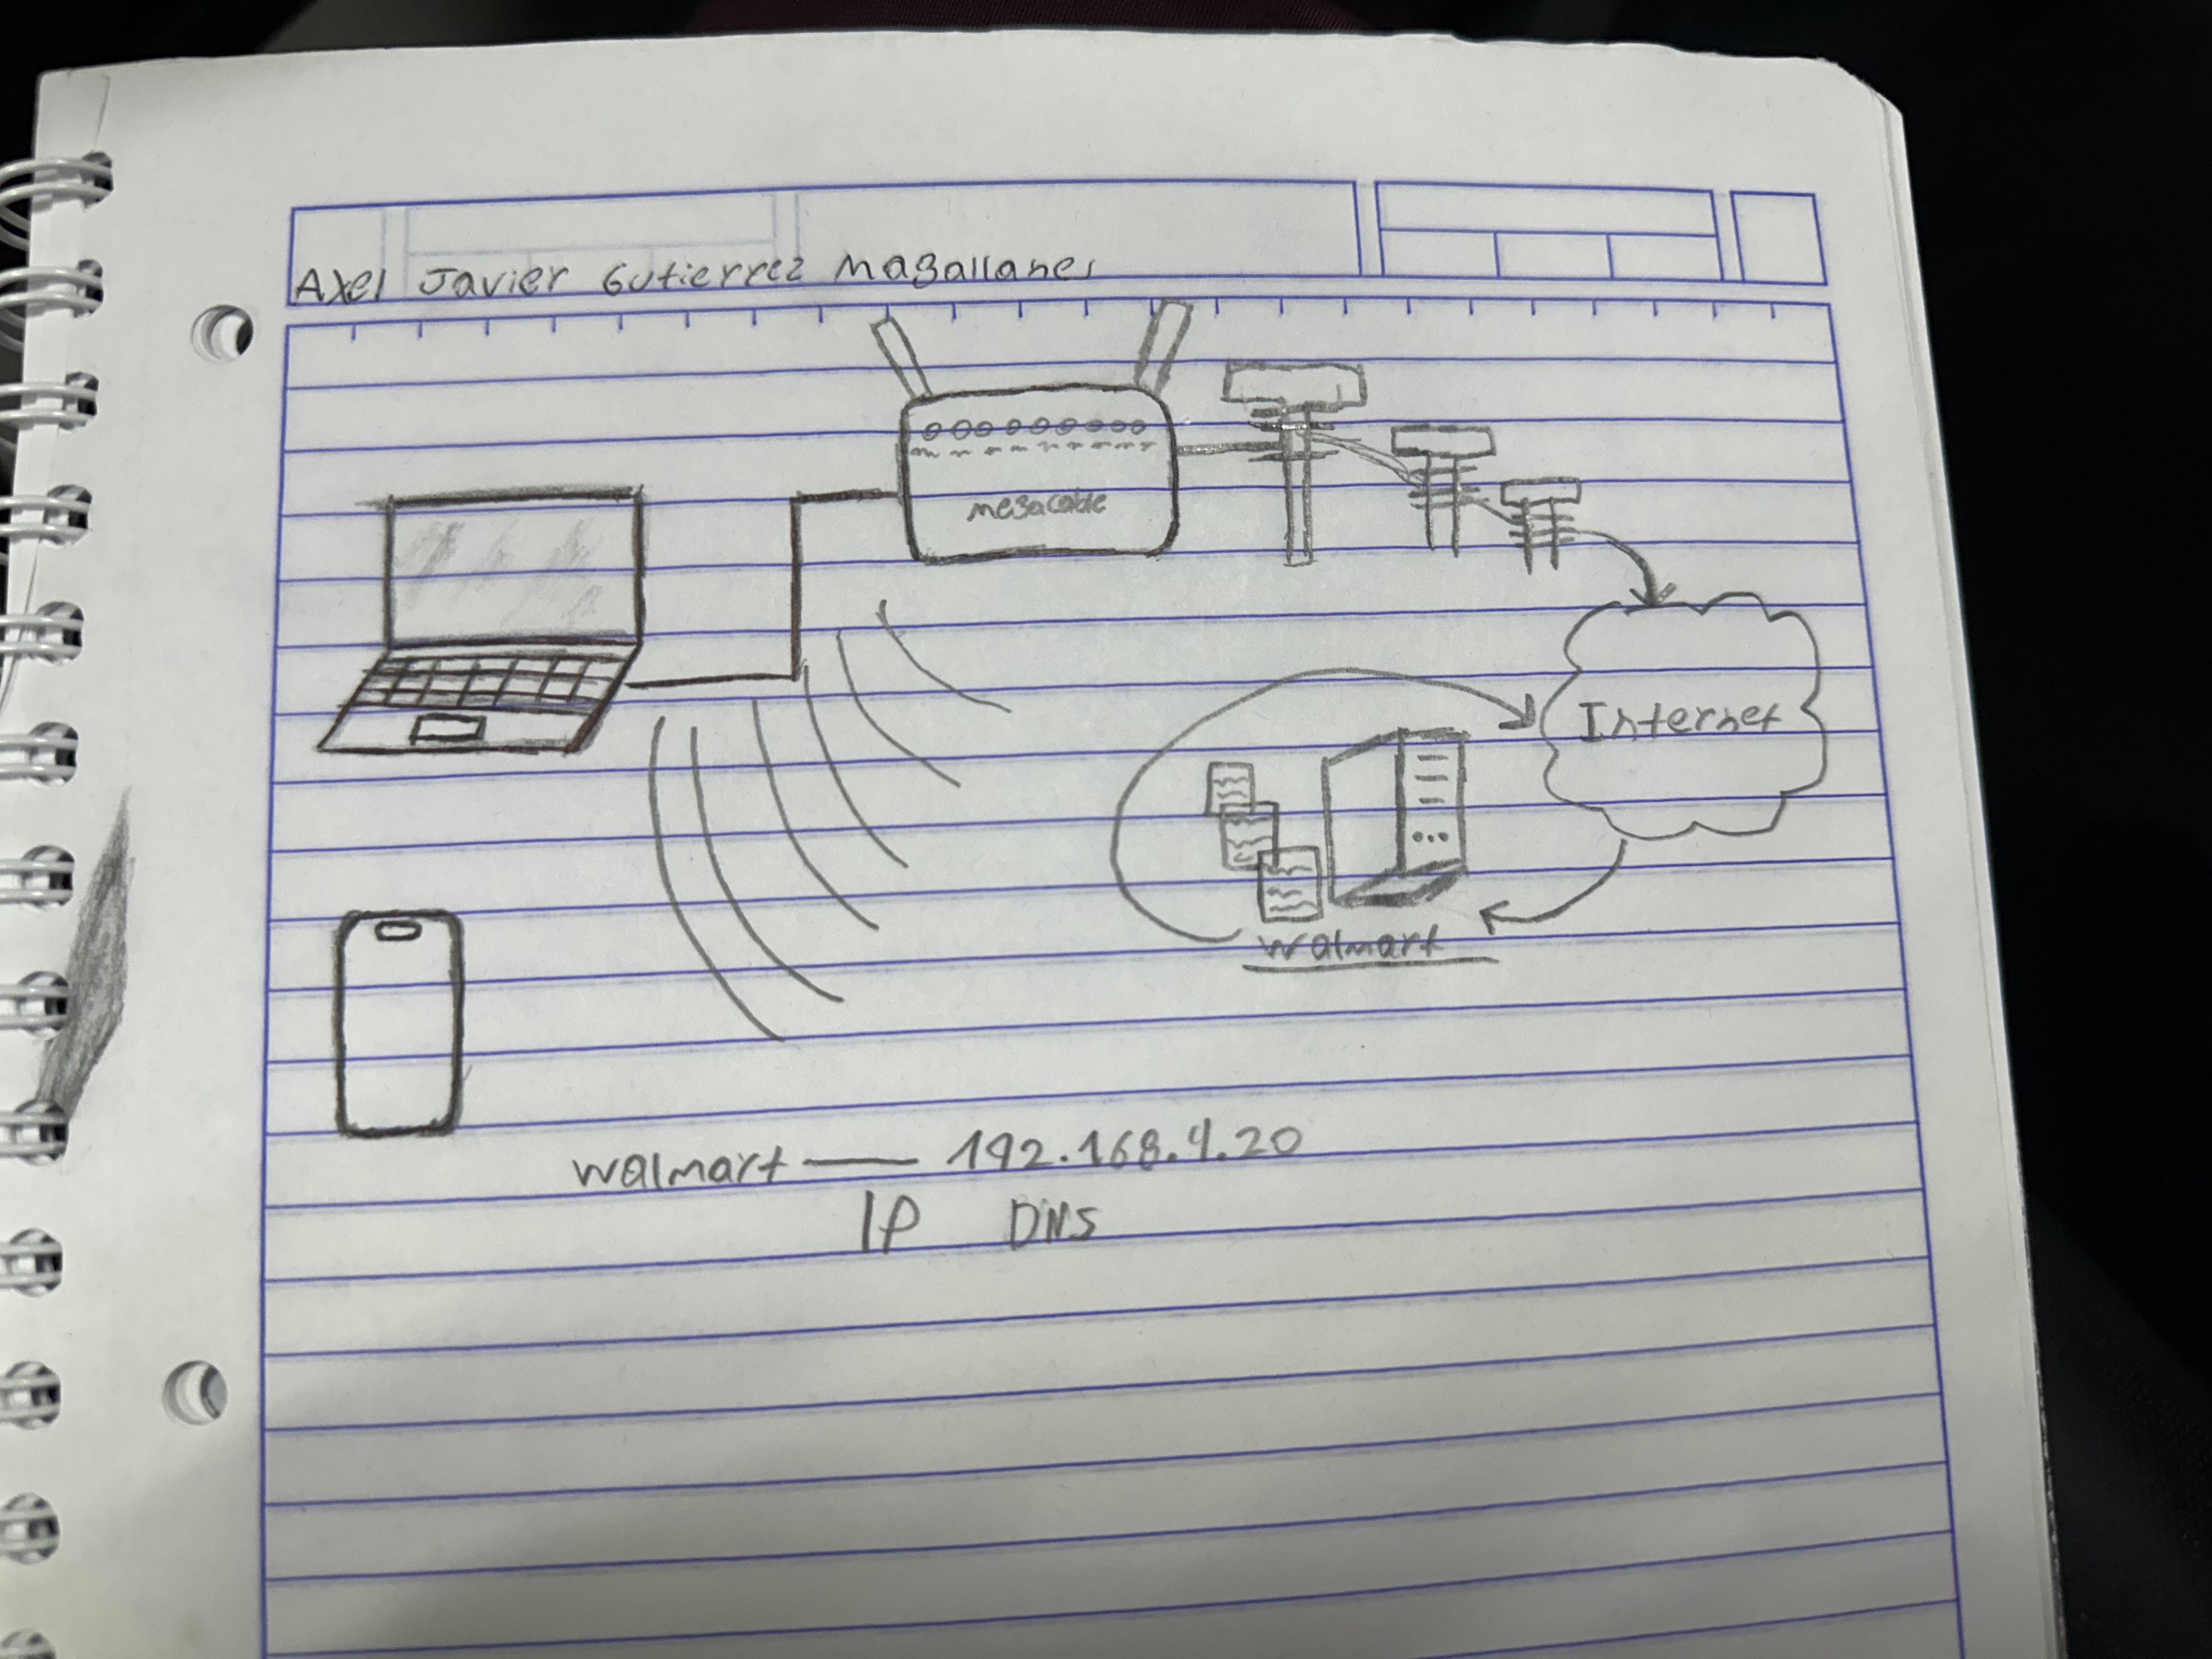 Axel Javier Gutierrez Magallanes
megacable
Internet
walmart
walmart — 192.168.4.20
IP DNS